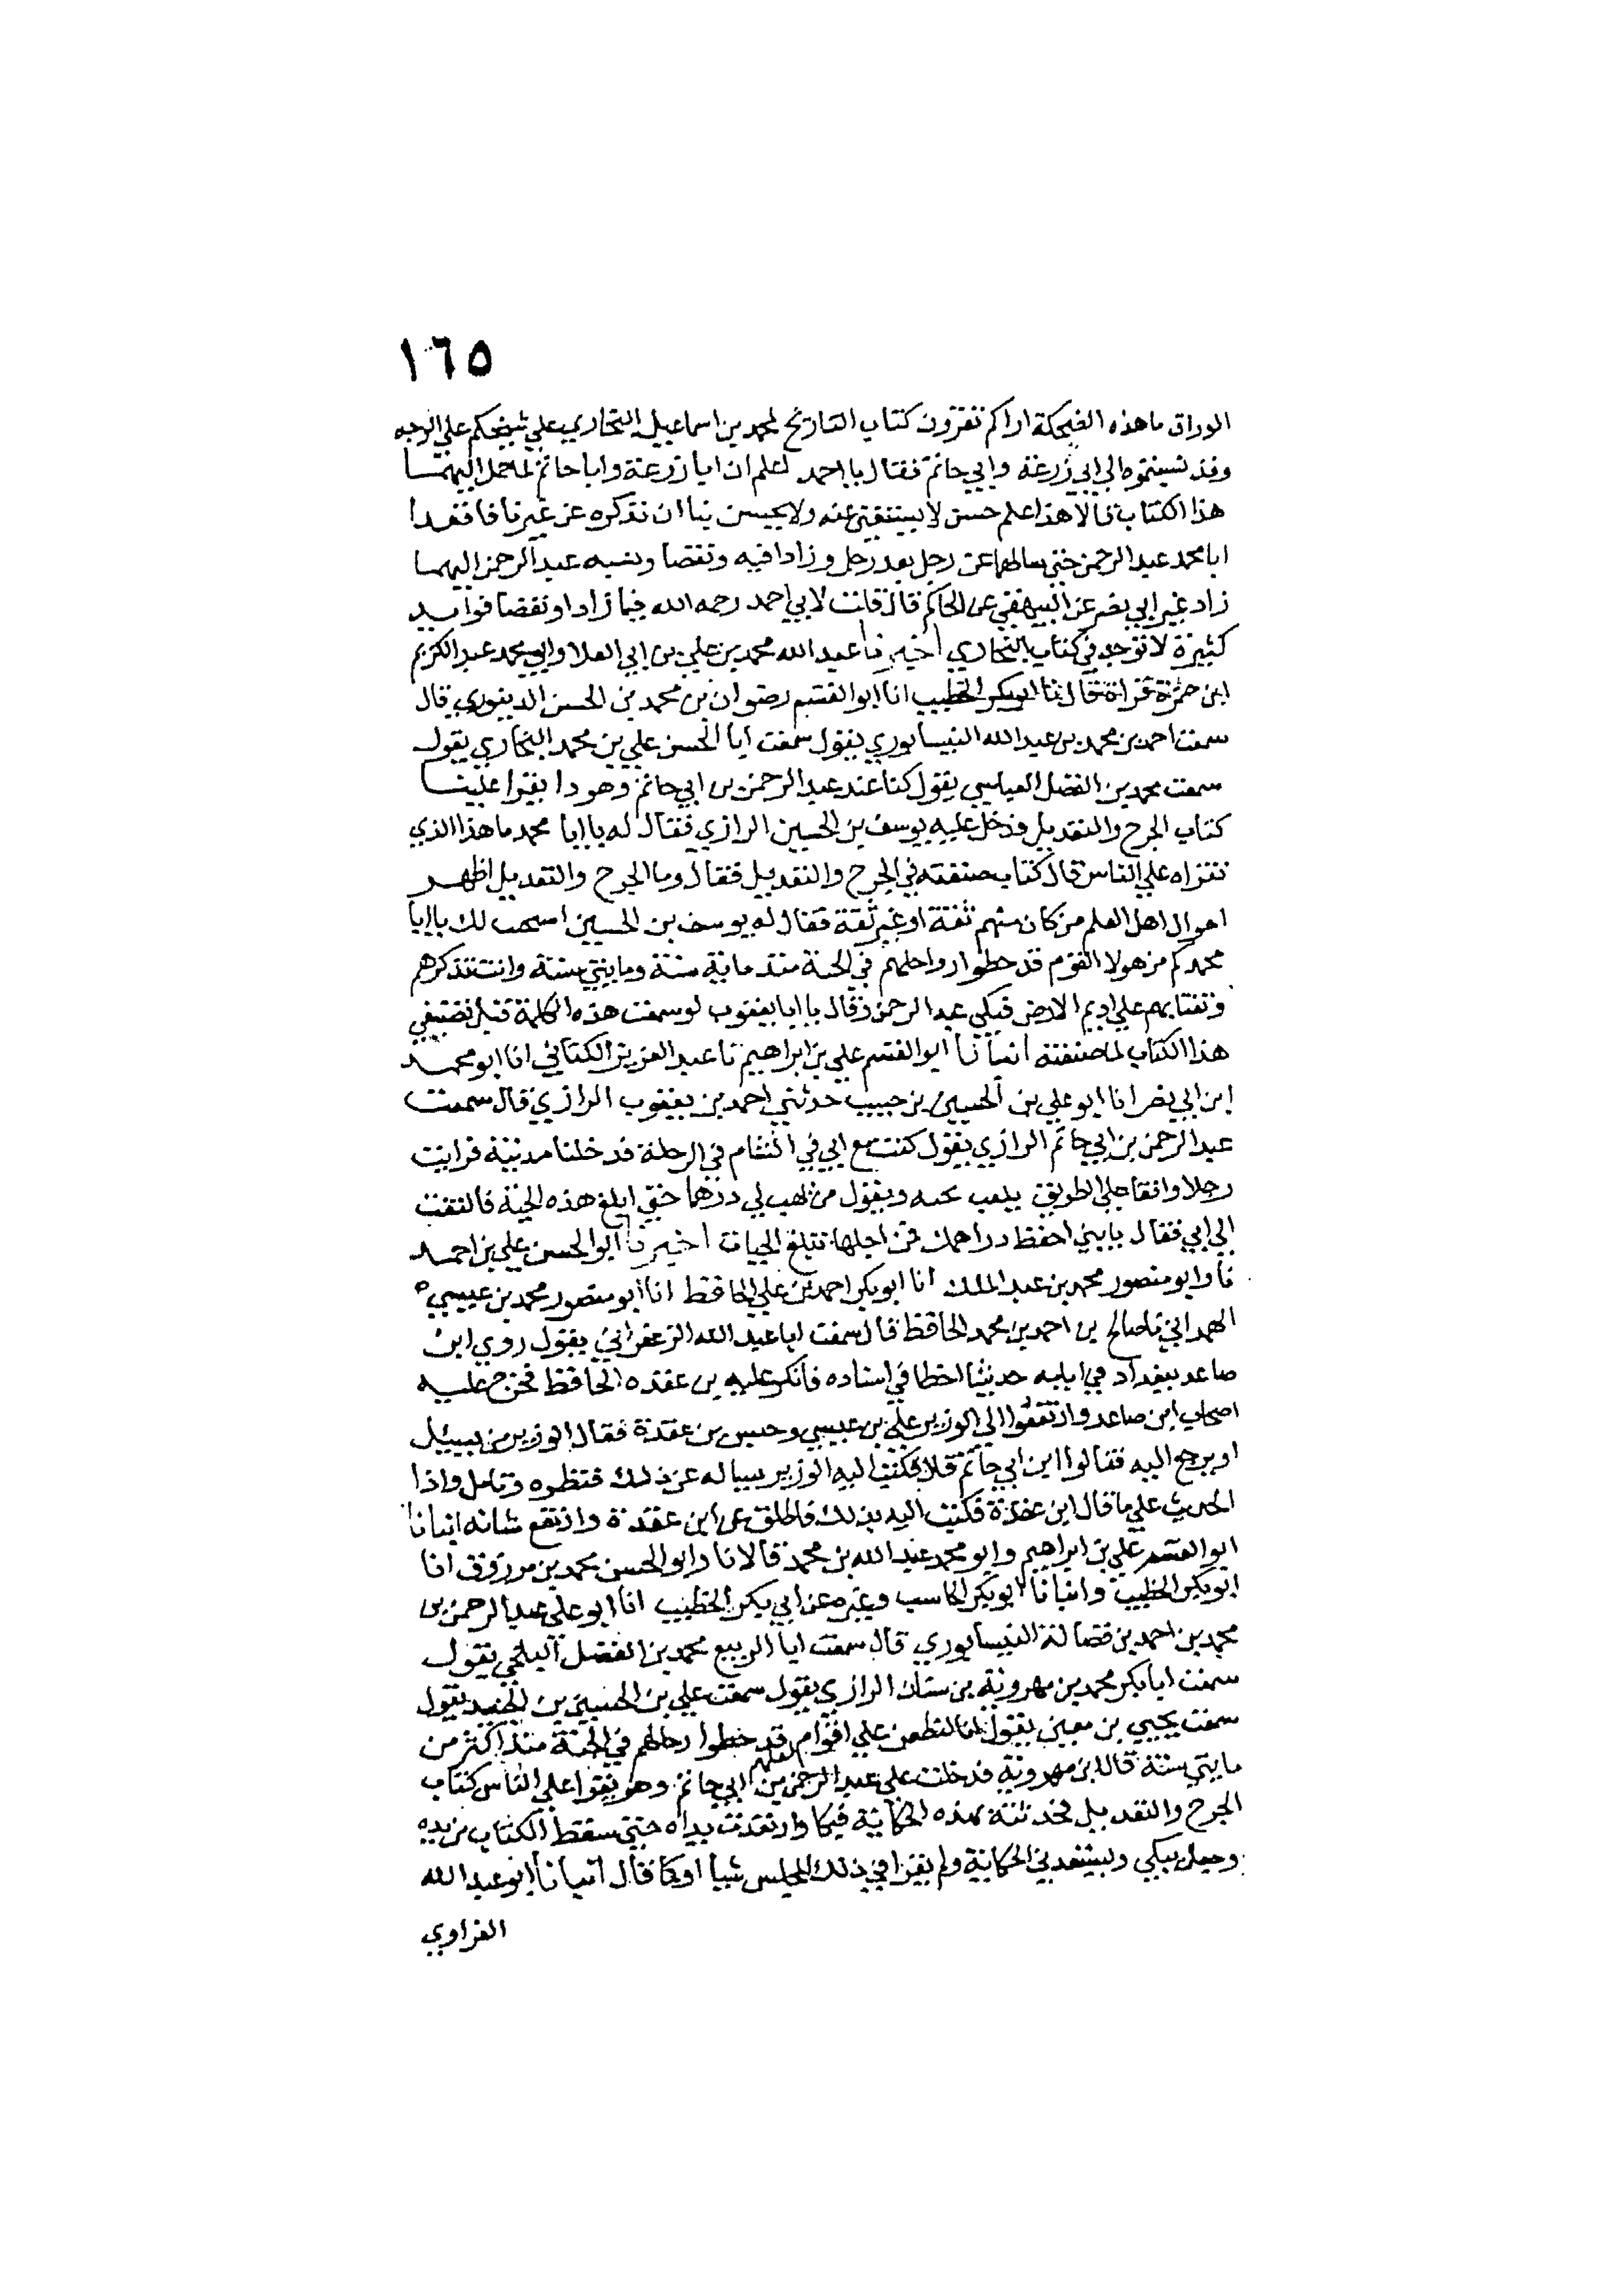 ١٦٥
الوراق ما هذه الضحكة اراكم تقرون كتاب التاريخ لمحمد بن اسماعيل البخاري علي شيخكم علي الوجه
وقد نسبتموه الي ابي زرعة وابي حاتم فقال يابا احمد اعلم ان ابا زرعة وابا حاتم لما حمل اليهما
هذا الكتاب قالا هذا علم حسن لا يستغني عنه ولا يحسن بنا ان نذكره عن غيرنا فاقعدا
ابا محمد عبد الرحمن حتي سالهما عن رجل بعد رجل وزادا فيه ونقصا ونسبه عبد الرحمن اليهما
زاد غير ابي نصر عن البيهقي عن الحاكم قال قلت لابي احمد رحمه الله فيما زادا ونقصا فوايد
كثيرة لا توجد في كتاب البخاري اخبرنا عبد الله محمد بن علي بن ابي العلا وابو محمد عبد الكريم
ابن حمزة قراة قال ثنا ابو بكر الخطيب انا ابو القسم رضوان بن محمد بن الحسن الدينوري قال
سمعت احمد بن محمد بن عبد الله النيسابوري يقول سمعت ابا الحسن علي بن محمد البخاري يقول
سمعت محمد بن الفضل العباسي يقول كنا عند عبد الرحمن بن ابي حاتم وهو دا يقرا علينا
كتاب الجرح والتعديل فدخل عليه يوسف بن الحسين الرازي فقال له يا ابا محمد ما هذا الذي
تقراه علي الناس قال كتاب صنفته في الجرح والتعديل فقال وما الجرح والتعديل اظهر
احوال اهل العلم من كان منهم ثقة او غير ثقة فقال له يوسف بن الحسين استحيت لك يا ابا
محمد كم من هولا القوم قد حطوا رواحلهم في الجنة منذ ماية سنة ومايتي سنة وانت تذكرهم
وتغتابهم علي اديم الارض فبكي عبد الرحمن وقال يا ابا يعقوب لو سمعت هذه الكلمة قبل تصنيفي
هذا الكتاب لما صنفته انبانا ابو القسم علي بن ابراهيم نا عبد العزيز الكتاني انا ابو محمد
ابن ابي نصر انا ابو علي بن الحسين بن حبيب حدثني احمد بن يعقوب الرازي قال سمعت
عبد الرحمن بن ابي حاتم الرازي يقول كنت مع ابي في الشام في الرحلة فدخلنا مدينة فرايت
رجلا واقفا علي الطريق يلعب بحية ويقول من يهب لي درهما حتي ابلع هذه الحية فالتفت
الي ابي فقال يا بني احفظ دراهمك فمن اجلها تبتلع الحيات اخبرنا ابو الحسن علي بن احمد
نا وابو منصور محمد بن عبد الملك انا ابو بكر احمد بن علي الحافظ انا ابو منصور محمد بن عيسي
الهمداني نا صالح بن احمد بن محمد الحافظ قال سمعت ابا عبد الله الزعفراني يقول روي ابن
صاعد ببغداد في ايامه حديثا اخطا في اسناده فانكر عليه بن عقده الحافظ فخرج عليه
اصحاب ابن صاعد وارتفعوا الي الوزير علي بن عيسي وحبس بن عقدة فقال الوزير من يسيل
او يرجع اليه فقالوا ابن ابي حاتم قال فكتب اليه الوزير يساله عن ذلك فنظره وتامل واذا
الحديث علي ما قال ابن عقدة فكتب اليه بذلك فاطلق عن ابن عقدة وارتفع شانه انبانا
ابو القسم علي بن ابراهيم وابو محمد عبد الله بن محمد قالا نا وابو الحسن محمد بن مرزوق انا
ابو بكر الخطيب وانبانا ابو بكر الحاسب وغيره عن ابي بكر الخطيب انا ابو علي عبد الرحمن بن
محمد بن احمد بن فضالة النيسابوري قال سمعت ابا الربيع محمد بن الفضل البلخي يقول
سمعت ابا بكر محمد بن مهروية بن سنان الرازي يقول سمعت علي بن الحسين بن الجنيد يقول
سمعت يحيي بن معين يقول انا لنطعن علي اقوام لعلهم قد حطوا رحالهم في الجنة منذ اكثر من
مايتي سنة قال ابن مهروية فدخلت علي عبد الرحمن بن ابي حاتم وهو يقرا علي الناس كتاب
الجرح والتعديل فحدثته بهذه الحكاية فبكا وارتعدت يداه حتي سقط الكتاب من يده
وجعل يبكي ويستعيدني الحكاية ولم يقرا في ذلك المجلس شيا او كما قال انبانا ابو عبد الله
الفراوي